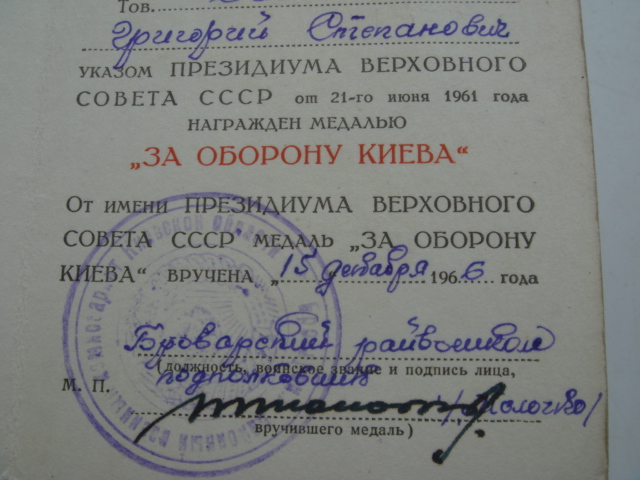 Тов.
Григорий Степанович
УКАЗОМ ПРЕЗИДИУМА ВЕРХОВНОГО
СОВЕТА СССР от 21-го июня 1961 года
НАГРАЖДЕН МЕДАЛЬЮ
„ЗА ОБОРОНУ КИЕВА“
От имени ПРЕЗИДИУМА ВЕРХОВНОГО
СОВЕТА СССР МЕДАЛЬ „ЗА ОБОРОНУ
КИЕВА“ ВРУЧЕНА „15 декабря 1966 года
Броварский райвоенком
(должность, воинское звание и подпись лица,
подполковник
М. П.
вручившего медаль)
Киевской области